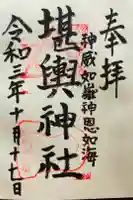 奉拝
神威如嶽神恩如海
堪輿神社
令和三年十月十七日